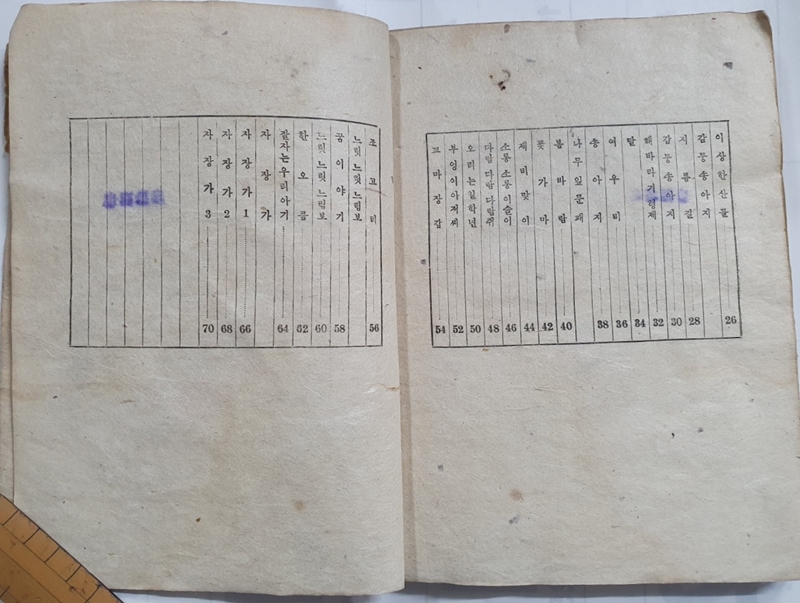 이상한산물 26
감둥송아지
지름길 28
감둥송아지 30
해바라기형제 32
달 34
여우비 36
송아지 38
나무잎문패
봄바람 40
꽃가마 42
제비맞이 44
소롱소롱이슬이 46
다람다람다람쥐 48
오리는일학년 50
부엉이아저씨 52
고마장갑 54
조고비 56
느릿느릿느림보
꿈이야기 58
느릿느릿느림보 60
한오큼 62
잘자는우리아기 64
자장가
자장가1 66
자장가2 68
자장가3 70